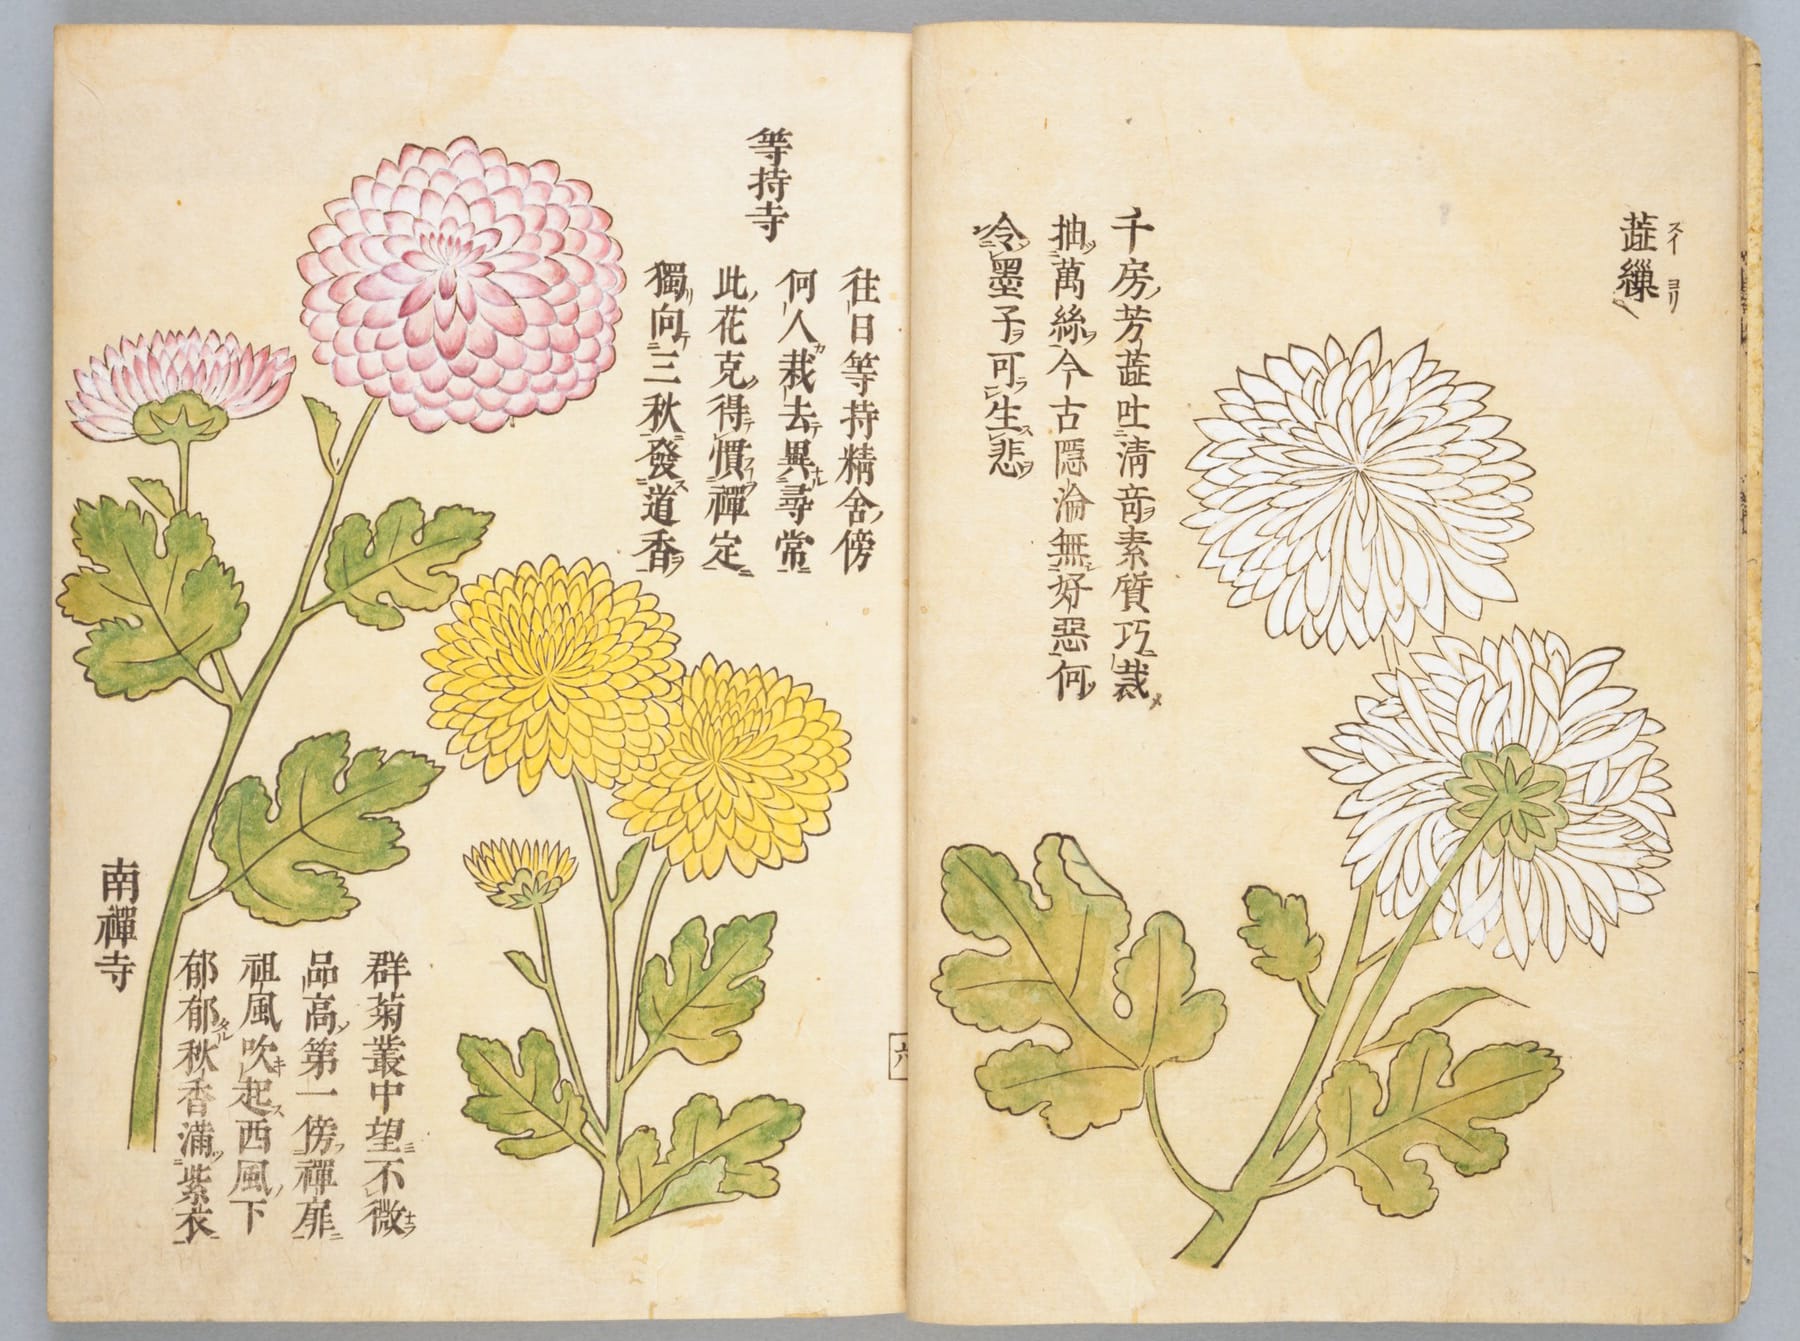 蕋繰
スイヨリ
千房芳蕋吐淸竒素質巧裁
抽萬絲今古隱淪無好惡何
令墨子可生悲
等持寺
往日等持精舍傍
何人栽去異尋常
此花克得慣禪定
獨向三秋發道香
南禪寺
群菊叢中望不微
品高第一傍禪扉
祖風吹起西風下
郁郁秋香滿紫衣
六